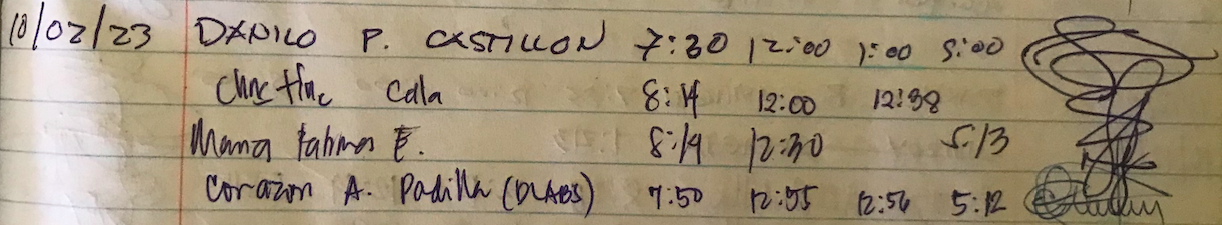 10/02/23 DANILO P. CASTILLON 7:30 12:00 1:00 5:00
Christine Cella 8:14 12:00 12:38
Mana Fatima E. 8:19 12:30 5:13
Corazon A. Padilla (DLABS) 7:50 12:55 12:56 5:12